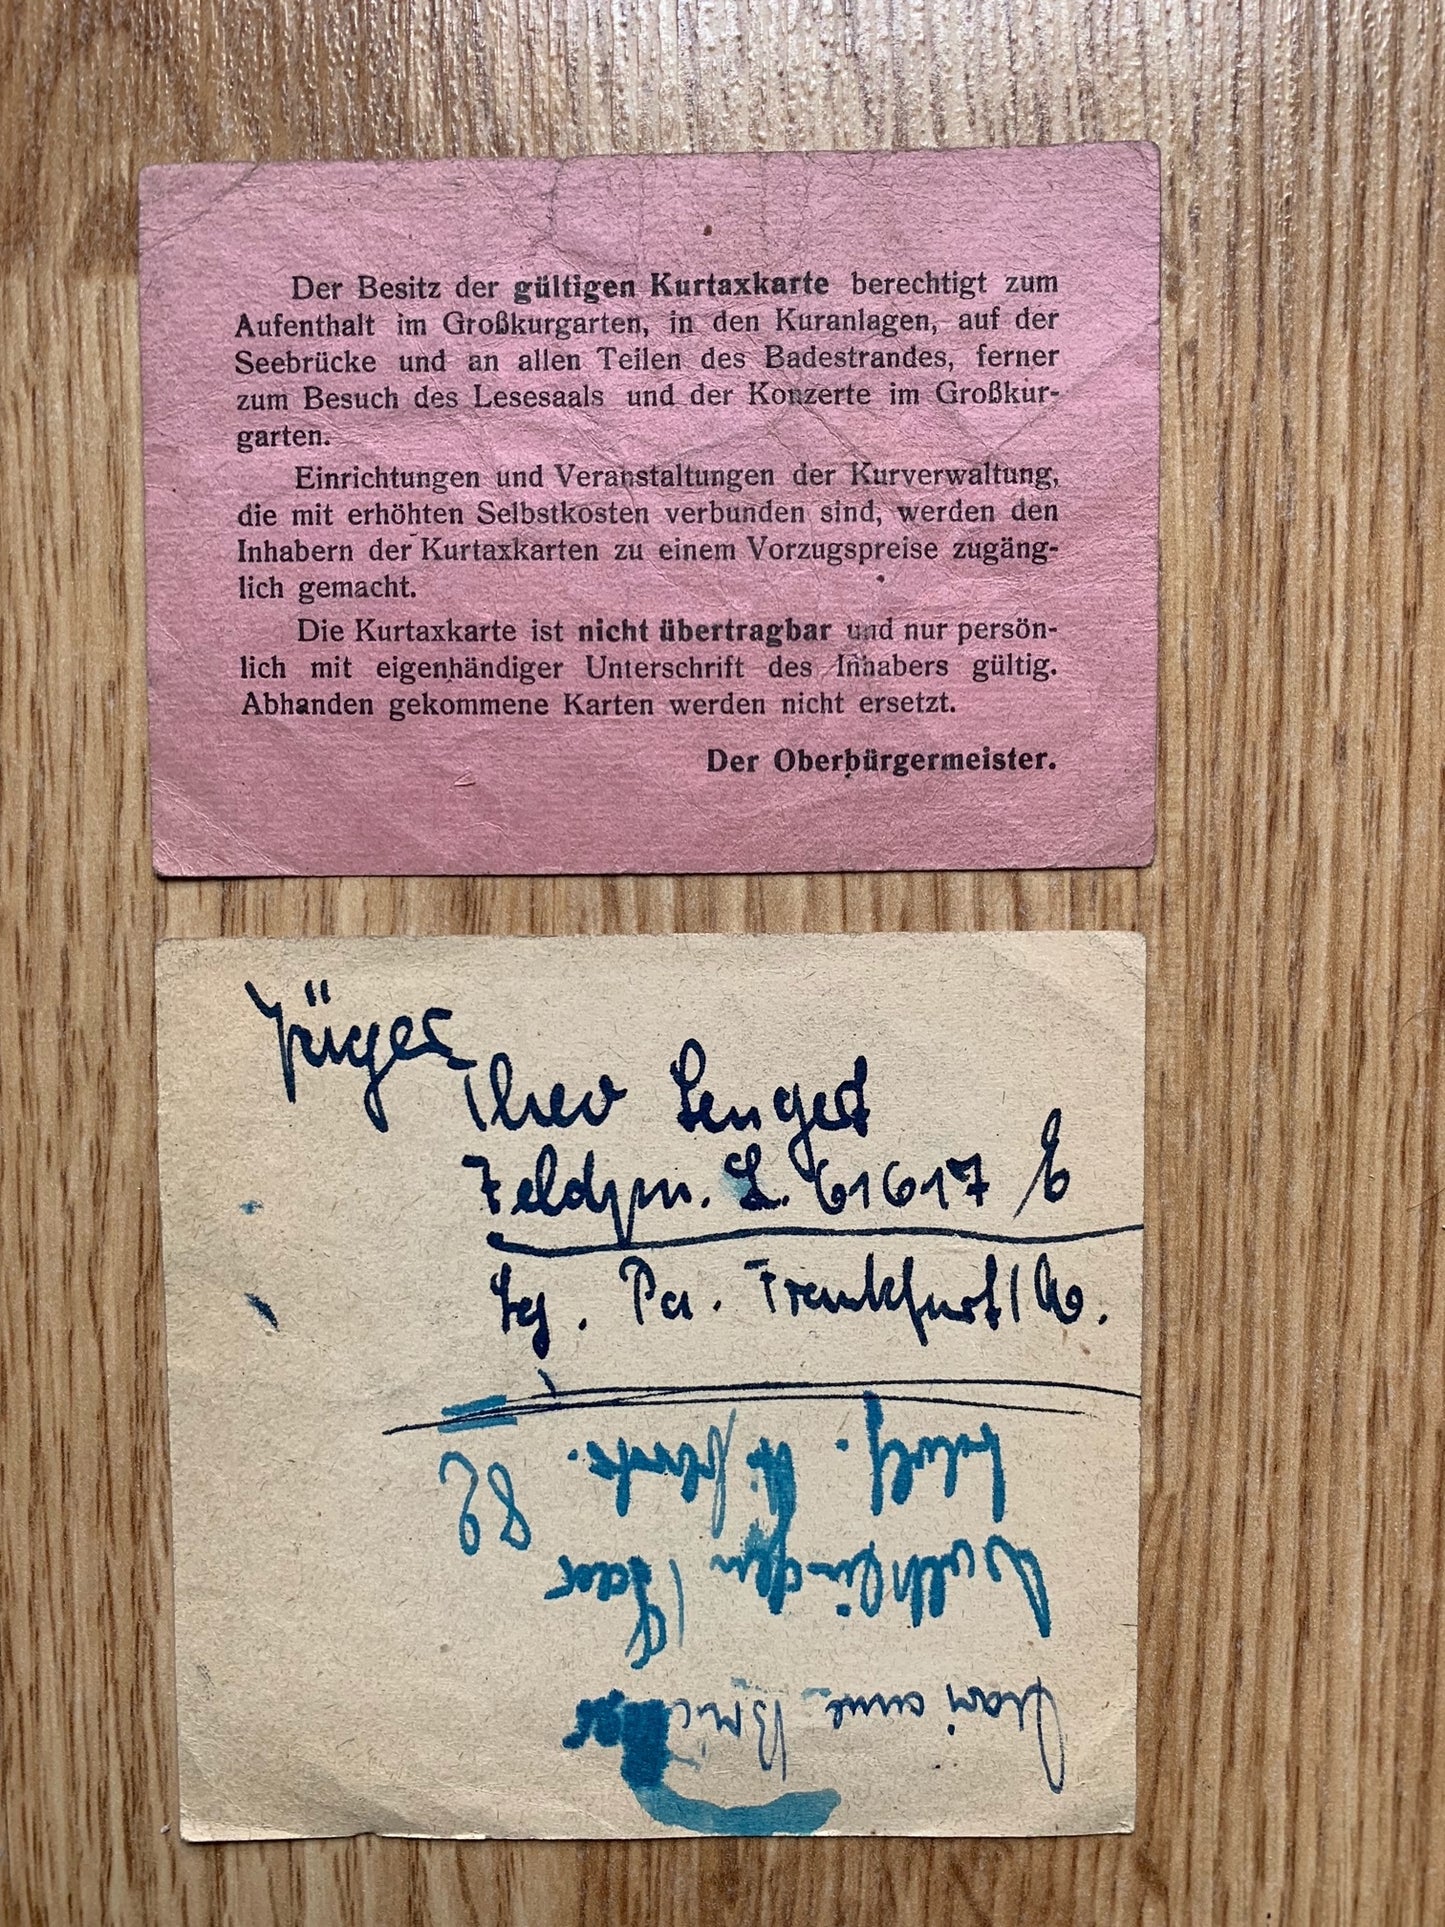 Der Besitz der gültigen Kurtaxkarte berechtigt zum
Aufenthalt im Großkurgarten, in den Kuranlagen, auf der
Seebrücke und an allen Teilen des Badestrandes, ferner
zum Besuch des Lesesaals und der Konzerte im Großkur-
garten.
Einrichtungen und Veranstaltungen der Kurverwaltung,
die mit erhöhten Selbstkosten verbunden sind, werden den
Inhabern der Kurtaxkarten zu einem Vorzugspreise zugäng-
lich gemacht.
Die Kurtaxkarte ist nicht übertragbar und nur persön-
lich mit eigenhändiger Unterschrift des Inhabers gültig.
Abhanden gekommene Karten werden nicht ersetzt.
Der Oberbürgermeister.
Theo
L. 61617
Lg. Pa. Frankfurt
Marianne
Saar
82